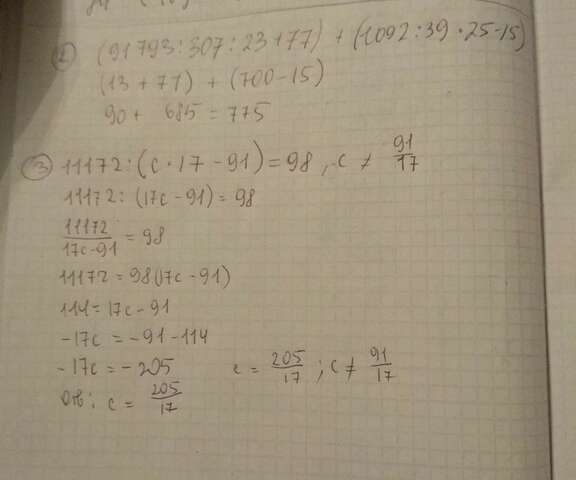 ② (91793:307:23+77) + (1092:39·25-15)
(13+77) + (700-15)
90 + 685 = 775
③ 11172:(c·17-91)=98, c ≠ 91/17
11172:(17c-91)=98
11172/17c-91 = 98
11172=98(17c-91)
114=17c-91
-17c = -91-114
-17c=-205 c = 205/17; c ≠ 91/17
Отв: c = 205/17